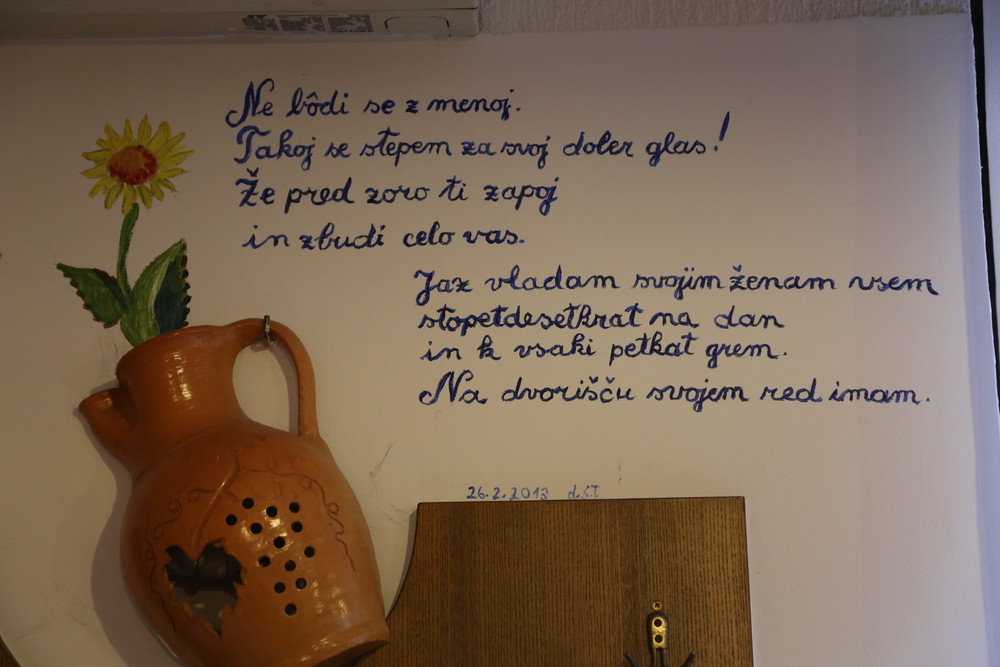 Ne bôdi se z menoj.
Takoj se stepem za svoj dober glas!
Že pred zoro ti zapoj
in zbudi celo vas.
Jaz vladam svojim ženam vsem
stopetdesetkrat na dan
in k vsaki petkat grem.
Na dvorišču svojem red imam.
26.2.2013 d.Š.T.